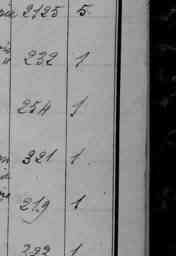 2125 5
232 1
254 1
321 1
219 1
292 1